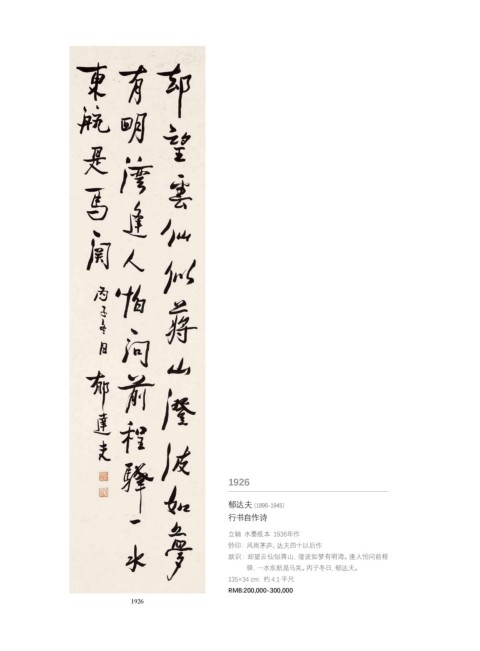 却望雲仙似蔣山澄波如夢
有明灣逢人怕问前程驛一水
東航是馬関
丙子冬日
郁達夫
1926
1926
郁达夫 (1896-1945)
行书自作诗
立轴 水墨纸本 1936年作
钤印：风雨茅庐、达夫四十以后作
款识：却望云仙似蒋山，澄波如梦有明湾。逢人怕问前程
驿，一水东航是马关。丙子冬日，郁达夫。
135×34 cm. 约 4.1 平尺
RMB:200,000-300,000